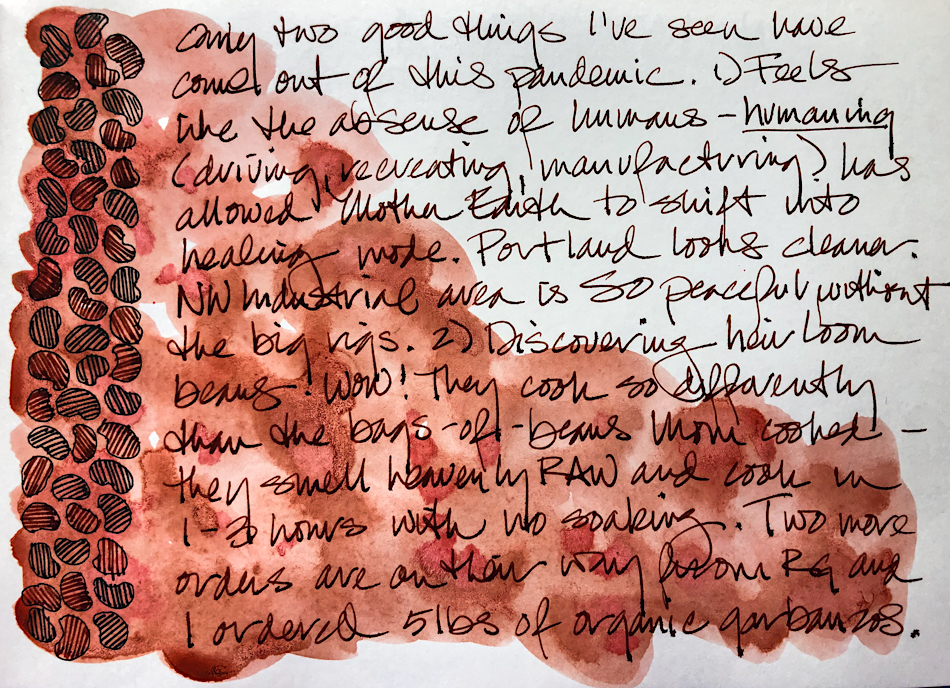 Only two good things I've seen have
come out of this pandemic. 1) Feels
like the absense of humans - humaning
(driving, recreating, manufacturing) has
allowed Mother Earth to shift into
healing mode. Portland looks cleaner.
NW Industrial area is SO peaceful without
the big rigs. 2) Discovering heirloom
beans! Wow! They cook so differently
than the bags-of-beans Mom cooked -
they smell heavenly RAW and cook in
1-3 hours with no soaking. Two more
orders are on their way from RG and
I ordered 5lbs of organic garbanzos.